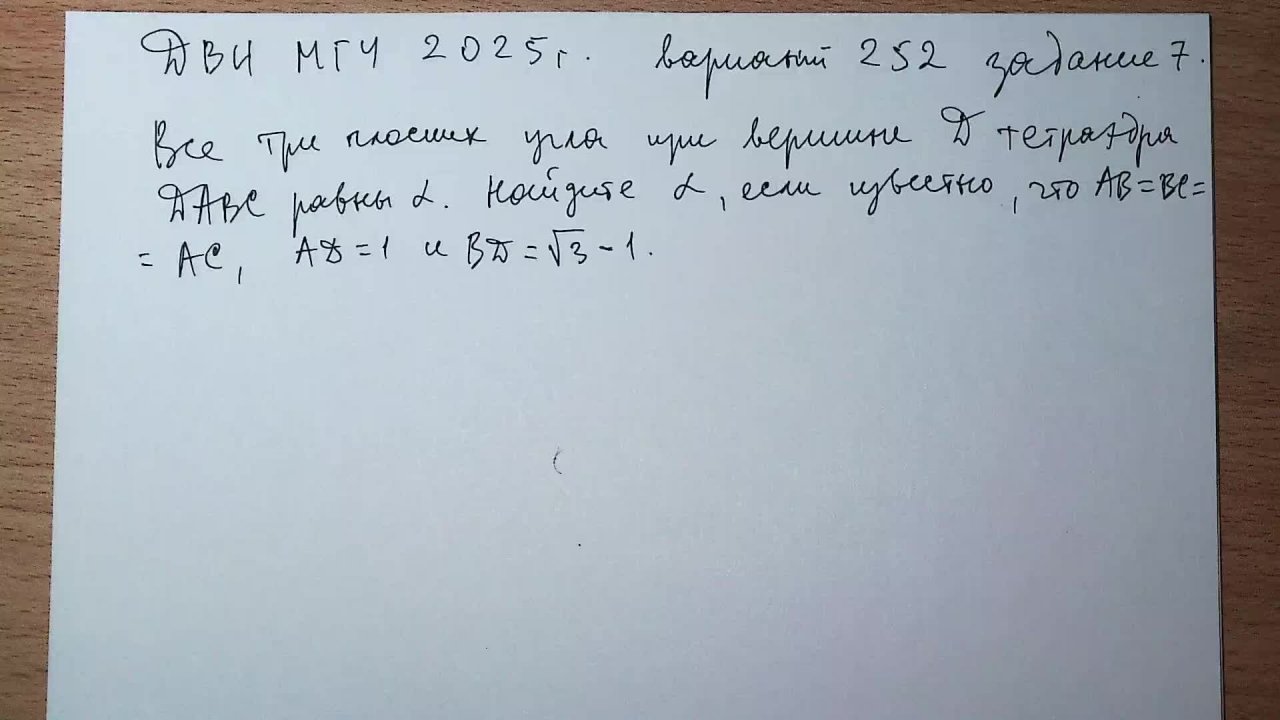 ДВИ МГУ 2025г. вариант 252 задание 7.
Все три плоских угла при вершине D тетраэдра
DABC равны α. Найдите α, если известно, что AB=BC=
= AC, AD=1 и BD=√3-1.